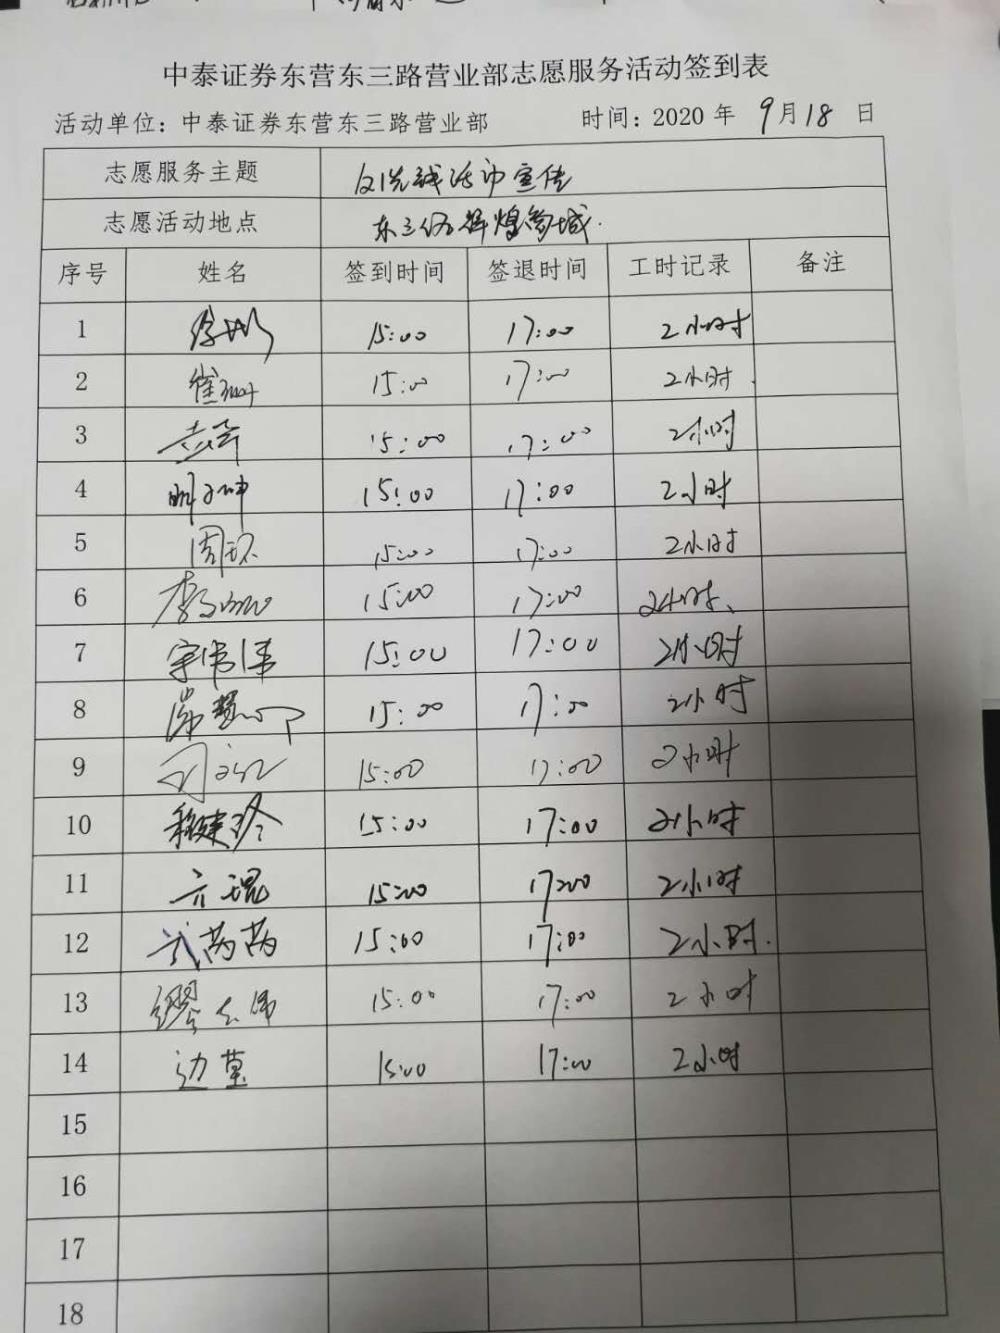 中泰证券东营东三路营业部志愿服务活动签到表
活动单位：中泰证券东营东三路营业部 时间：2020 年 9月18 日
志愿服务主题 反洗钱活动宣传
志愿活动地点 东三路辉煌商城.
序号 姓名 签到时间 签退时间 工时记录 备注
1 15:00 17:00 2小时
2 15:00 17:00 2小时
3 15:00 17:00 2小时
4 15:00 17:00 2小时
5 周环 15:00 17:00 2小时
6 15:00 17:00 2小时、
7 15:00 17:00 2小时
8 15:00 17:00 2小时
9 15:00 17:00 2小时
10 15:00 17:00 2小时
11 15:00 17:00 2小时
12 武芮芮 15:00 17:00 2小时.
13 15:00 17:00 2小时
14 边莹 15:00 17:00 2小时
15
16
17
18